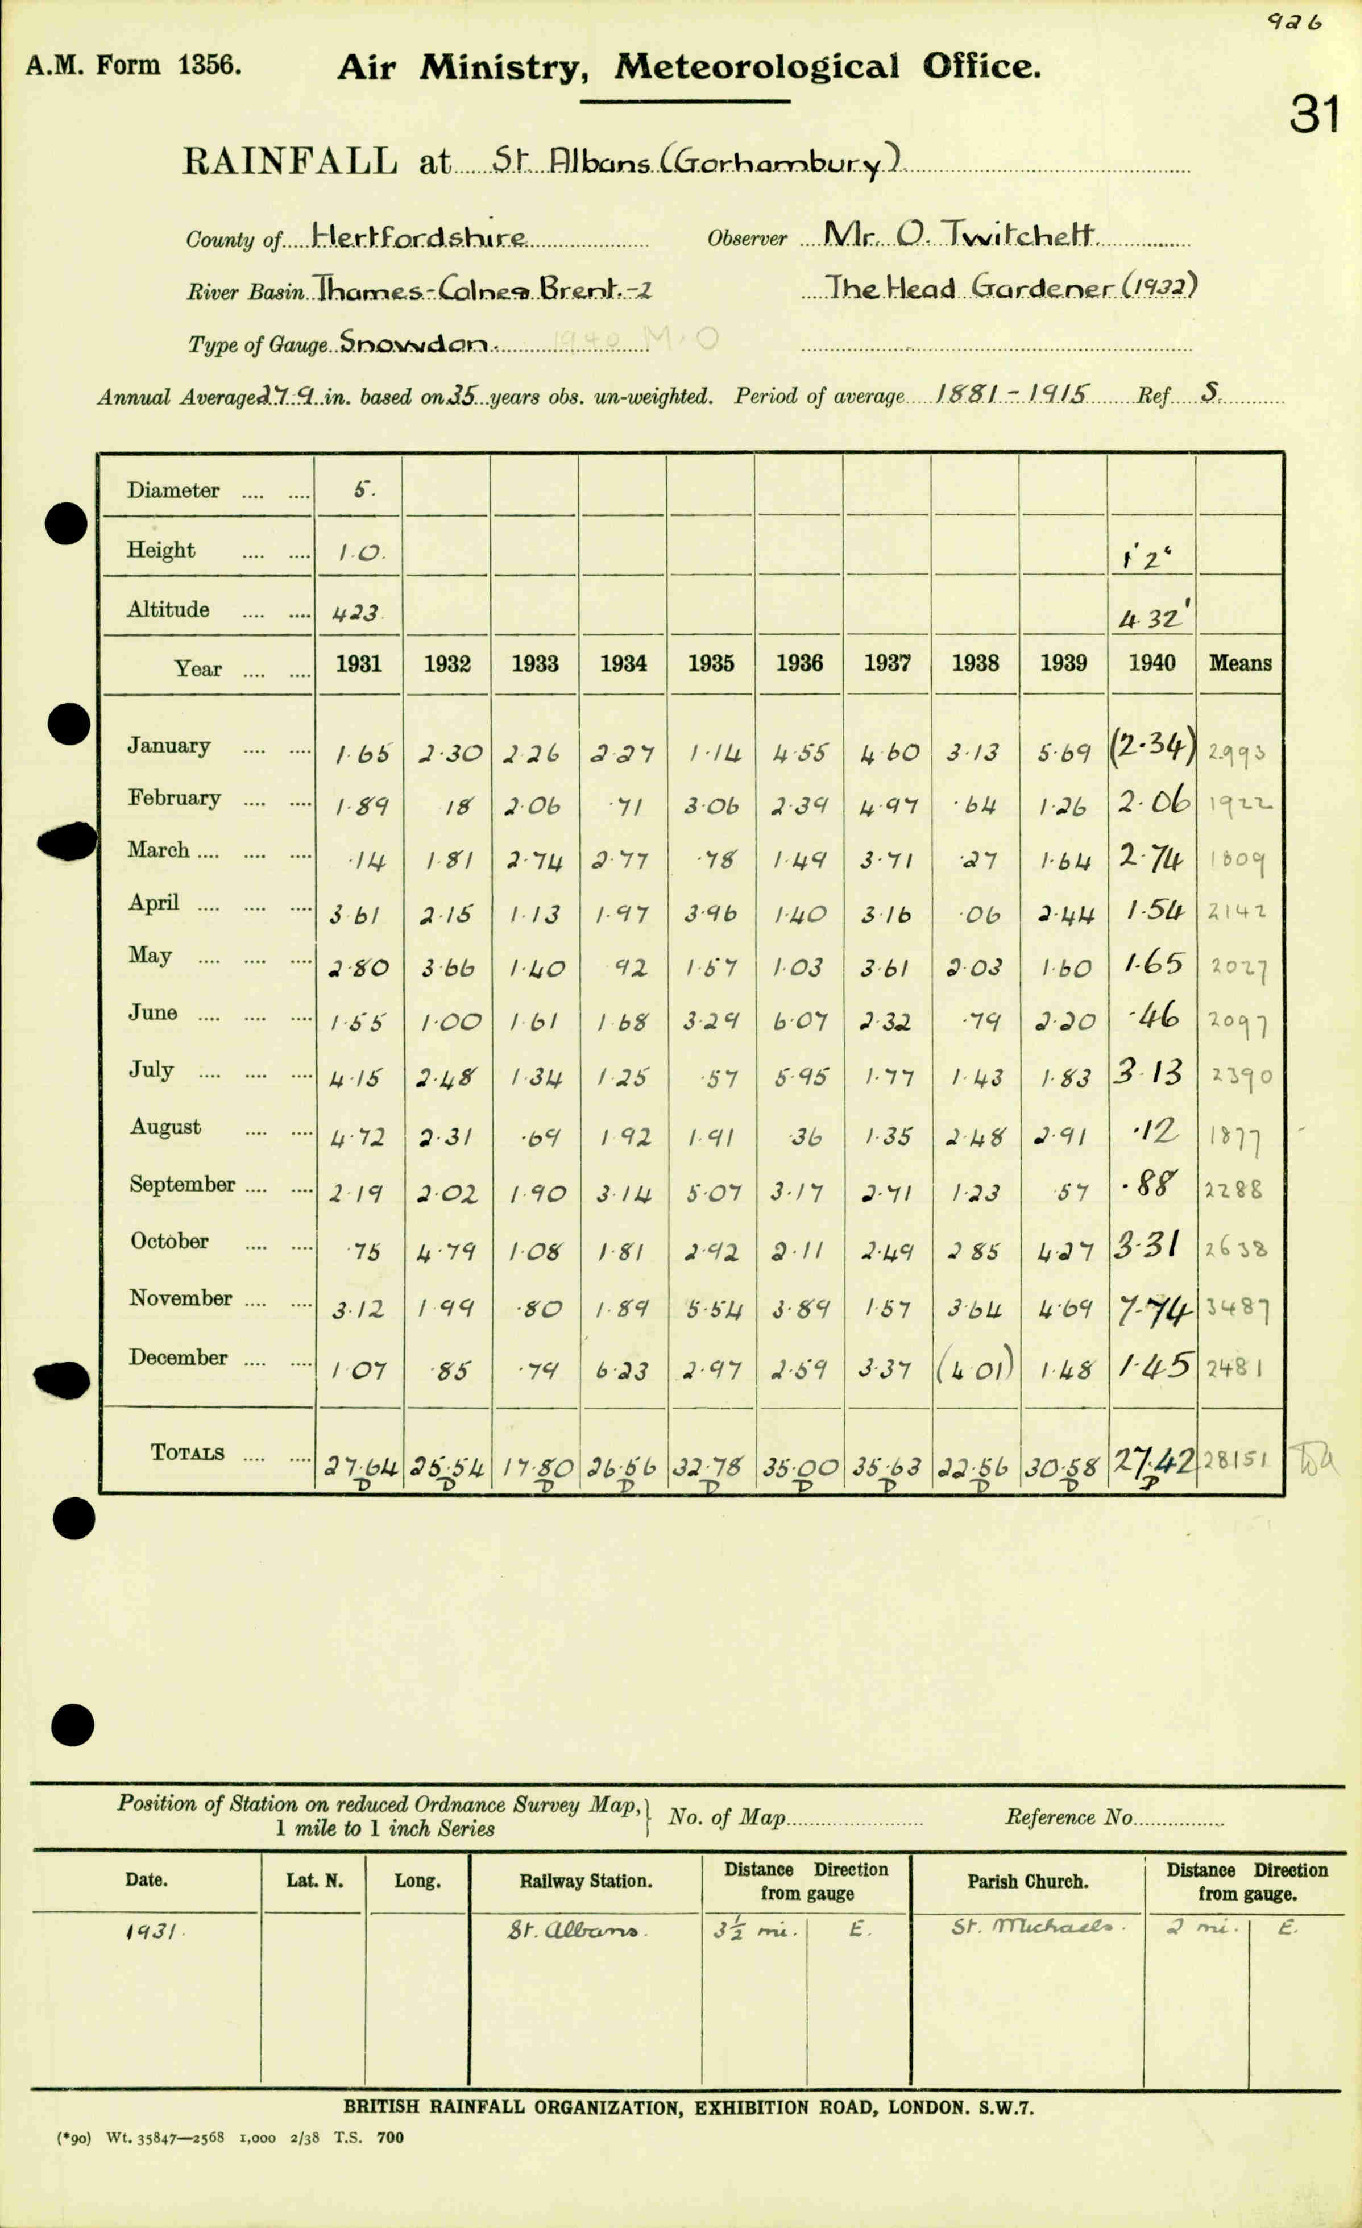 926
A.M. Form 1356. Air Ministry, Meteorological Office.
31
RAINFALL at St. Albans (Gorhambury)
County of Hertfordshire Observer Mr. O. Twitchett.
River Basin Thames-Colne & Brent.-2 The Head Gardener (1932)
Type of Gauge Snowdon. 1940 M.O
Annual Average 27.9 in. based on 35 years obs. un-weighted. Period of average 1881-1915 Ref S.
Diameter .... .... 5.
Height .... .... 1.0. 1' 2"
Altitude .... .... 423 432'
Year .... .... 1931 1932 1933 1934 1935 1936 1937 1938 1939 1940 Means
January .... .... 1.65 2.30 2.26 2.27 1.14 4.55 4.60 3.13 5.69 (2.34) 2993
February .... .... 1.89 18 2.06 .71 3.06 2.39 4.97 .64 1.26 2.06 1922
March .... .... .... .14 1.81 2.74 2.77 .78 1.49 3.71 .27 1.64 2.74 1809
April .... .... .... 3.61 2.15 1.13 1.97 3.96 1.40 3.16 .06 2.44 1.54 2142
May .... .... .... 2.80 3.66 1.40 92 1.57 1.03 3.61 2.03 1.60 1.65 2027
June .... .... .... 1.55 1.00 1.61 1.68 3.29 6.07 2.32 .79 2.20 .46 2097
July .... .... .... 4.15 2.48 1.34 1.25 .57 5.95 1.77 1.43 1.83 3.13 2390
August .... .... 4.72 2.31 .69 1.92 1.91 .36 1.35 2.48 2.91 .12 1877
September .... .... 2.19 2.02 1.90 3.14 5.07 3.17 2.71 1.23 .57 .88 2288
October .... .... .75 4.79 1.08 1.81 2.92 2.11 2.49 2 85 4.27 3.31 2638
November .... .... 3.12 1.99 .80 1.89 5.54 3.89 1.57 3.64 4.69 7.74 3487
December .... .... 1.07 .85 .79 6.23 2.97 2.59 3.37 (4 01) 1.48 1.45 2481
TOTALS .... .... 27.64 25.54 17.80 26.56 32.78 35.00 35.63 22.56 30.58 27.42 28151
D D D D D D D D D D
Position of Station on reduced Ordnance Survey Map, } No. of Map Reference No.
1 mile to 1 inch Series
Date. Lat. N. Long. Railway Station. Distance Direction from gauge Parish Church. Distance Direction from gauge.
1931. St. Albans. 3½ mi. E. St. Michaels. 2 mi. E.
BRITISH RAINFALL ORGANIZATION, EXHIBITION ROAD, LONDON. S.W.7.
(*90) Wt. 35847—2568 1,000 2/38 T.S. 700